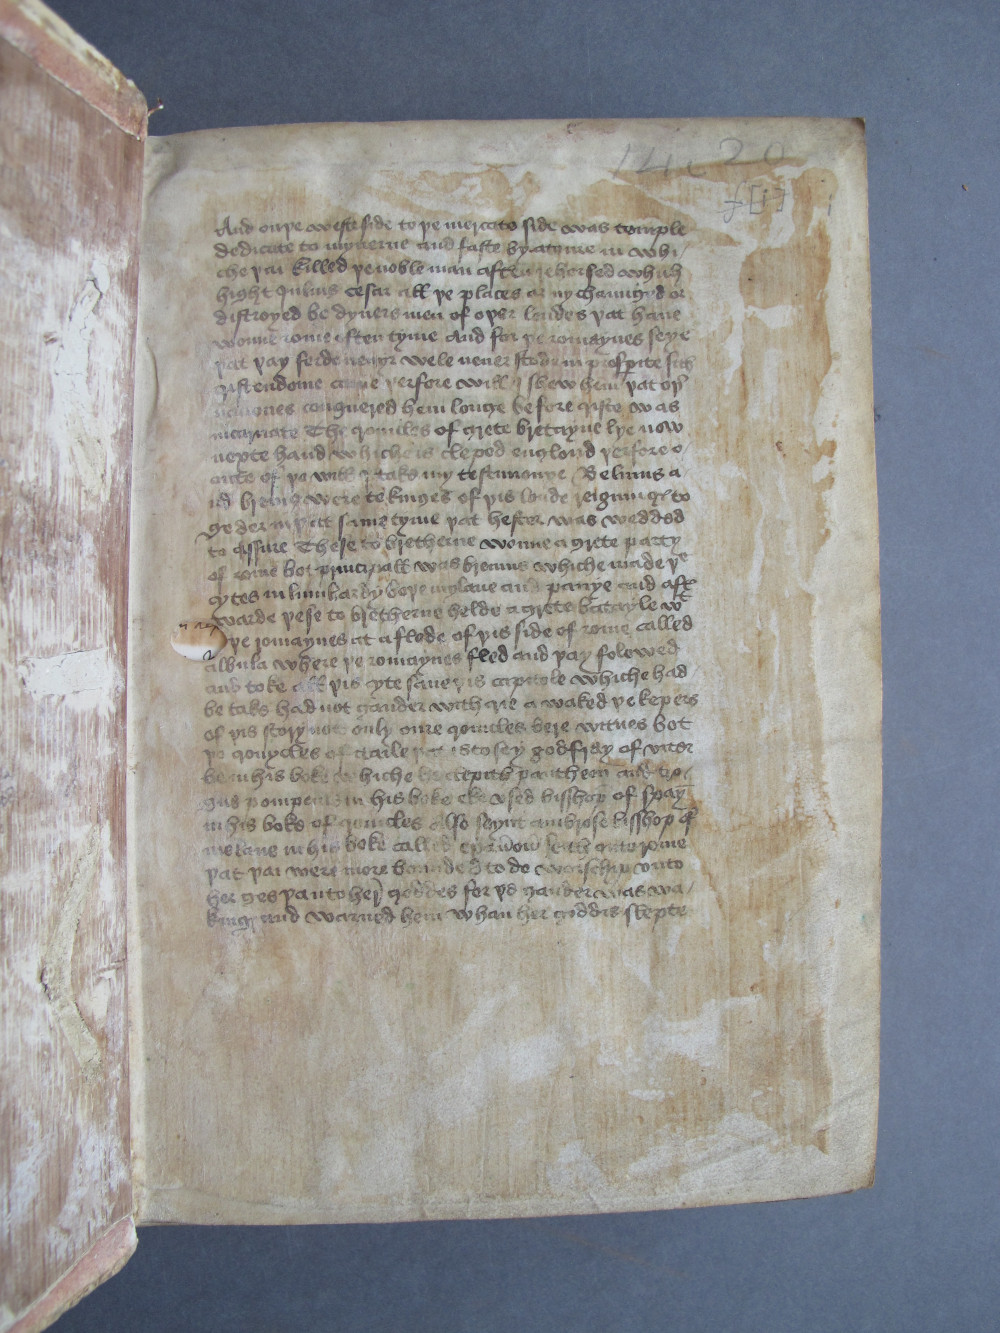 14c20
f[i] i
And on þe west side to þe mercato side was temple
dedicate to mynerue and faste by atyme in whi/
che þai killed þe noble man aften rehersed which
hight Julius cesar all þe places ar ny chaungid or
distroyed be dyuers men of oþer londes þat haue
wonne rome often tyme And for þe romaynes seye
þat þay ferde neuyr wele neuer stode in prosperite sith
cristendome þerfore will I shew hem þat oþer
conquered hem longe before criste was
incarnate The cronicles of grete bretayne lye now
nexte hand whiche is cleped englond þerfore o/
oute of þo will I take my testimonye Belinus a/
nd brenius were to kinges of þis londe reigning to
geder in þatt same tyme þat hester was wedded
to assure These to bretherne wonne a grete party
of rome bot principall was brenius whiche made þe
cytes in lumbardy boþe mylane and pauye and aftir
warde þese to bretherne helde a grete batayle wt
þe romaynes at a flode of þis side of rome called
albula where þe romaynes fled and þay folewed
and toke all þis cyte saue þis capitole whiche had
be take had not gander with crie a waked þe kepers
of þis story not only oure cronicles bere witnes bot
þo cronycles of itaile þat is to sey godfray of viter
be in his boke whiche he clepith pantheon and tro/
gus pompeius in his boke eke vsed bisshop of spay
in his boke of cronicles Also seynt ambrose bisshop of
melane in his boke called seith onto rome
þat þai were more bounded to do worschip vnto
her ges þan to her goddes for þe gander was wa/
king and warned hem whan her goddis slepte